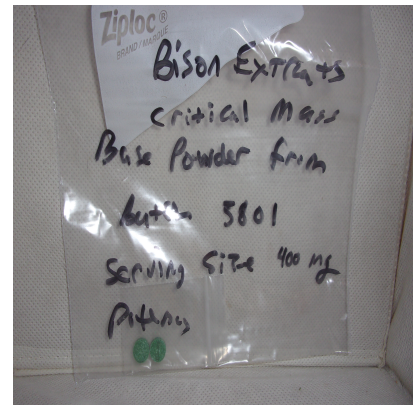 Ziploc®
BRAND / MARQUE
Bison Extracts
Critical Mass
Base Powder from
5801
Serving Size 400 mg